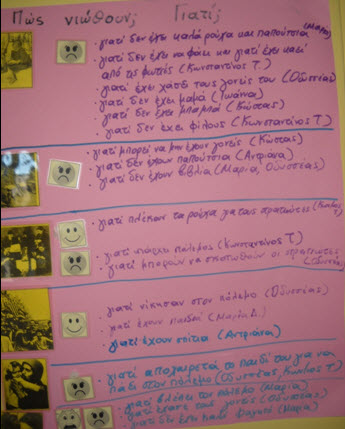 Πώς νιώθουν; Γιατί;
· γιατί δεν έχει καλά ρούχα και παπούτσια (Μαρία)
· γιατί δεν έχει να φάει και γιατί έχει καεί
από τις φωτιές (Κωνσταντίνος Τ)
· γιατί έχει χάσει τους γονείς του (Οδυσσέας)
· γιατί δεν έχει μαμά (Ιωάννα)
· γιατί δεν έχει μπαμπά (Κώστας)
· γιατί δεν έχει φίλους (Κωνσταντίνος Τ)
· γιατί μπορεί να μην έχουν γονείς (Κώστας)
· γιατί δεν έχουν παπούτσια (Αντριάνα)
· γιατί δεν έχουν βιβλία (Μαρία, Οδυσσέας)
· γιατί πλέκουν τα ρούχα για τους στρατιώτες
· γιατί υπάρχει πόλεμος (Κωνσταντίνος Τ.)
· γιατί μπορούν να σκοτωθούν οι στρατιώτες (Οδυσσέας)
· γιατί νίκησαν στον πόλεμο (Οδυσσέας)
· γιατί έχουν παιδιά (Μαρία Δ.)
· γιατί έχουν σπίτια (Αντριάνα)
· γιατί αποχαιρετά το παιδί του για να
πάει στον πόλεμο (Οδυσσέας, Κων/νος Τ)
· γιατί βλέπει τον πόλεμο (Μαρία)
· γιατί έχασε τους γονείς (Οδυσσέας)
· γιατί δεν έχει καλό φαγητό (Μαρία)